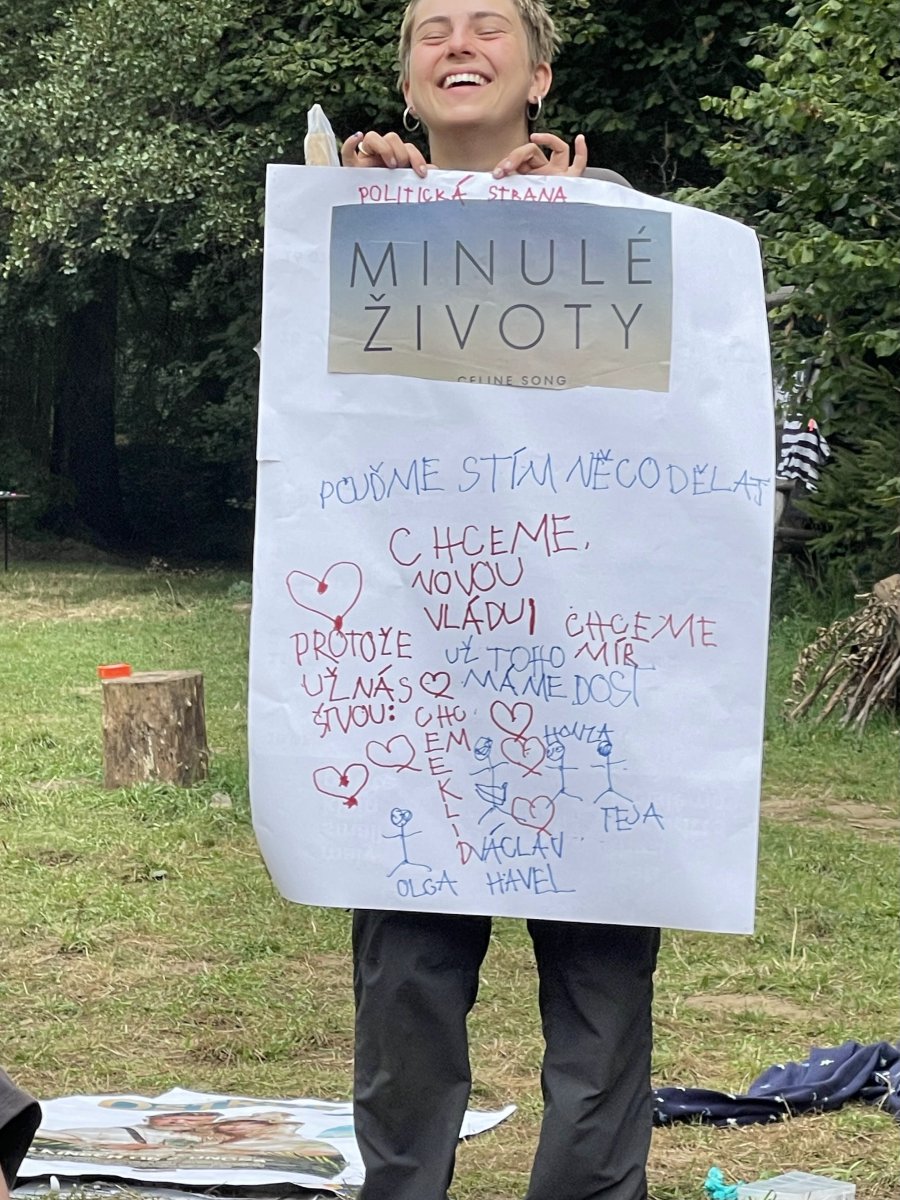 POLITICKÁ STRANA
MINULÉ
ŽIVOTY
CELINE SONG
POUĎME STÍM NĚCO DĚLAT
CHCEME,
NOVOU
VLÁDU!
CHCEME
MÍR
PROTOŽE
UŽ NÁS
ŠTVOU:
UŽ TOHO
MÁME DOST
CHC
EM
E
K
L
I
D
HONZA
TEJA
VÁCLAV
HAVEL
OLGA